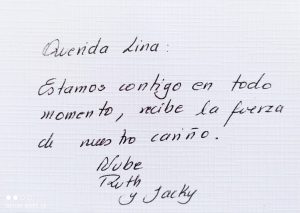 Querida Lina:
Estamos contigo en todo
momento, recibe la fuerza
de nuestro cariño.
Nube
Ruth
y Jacky